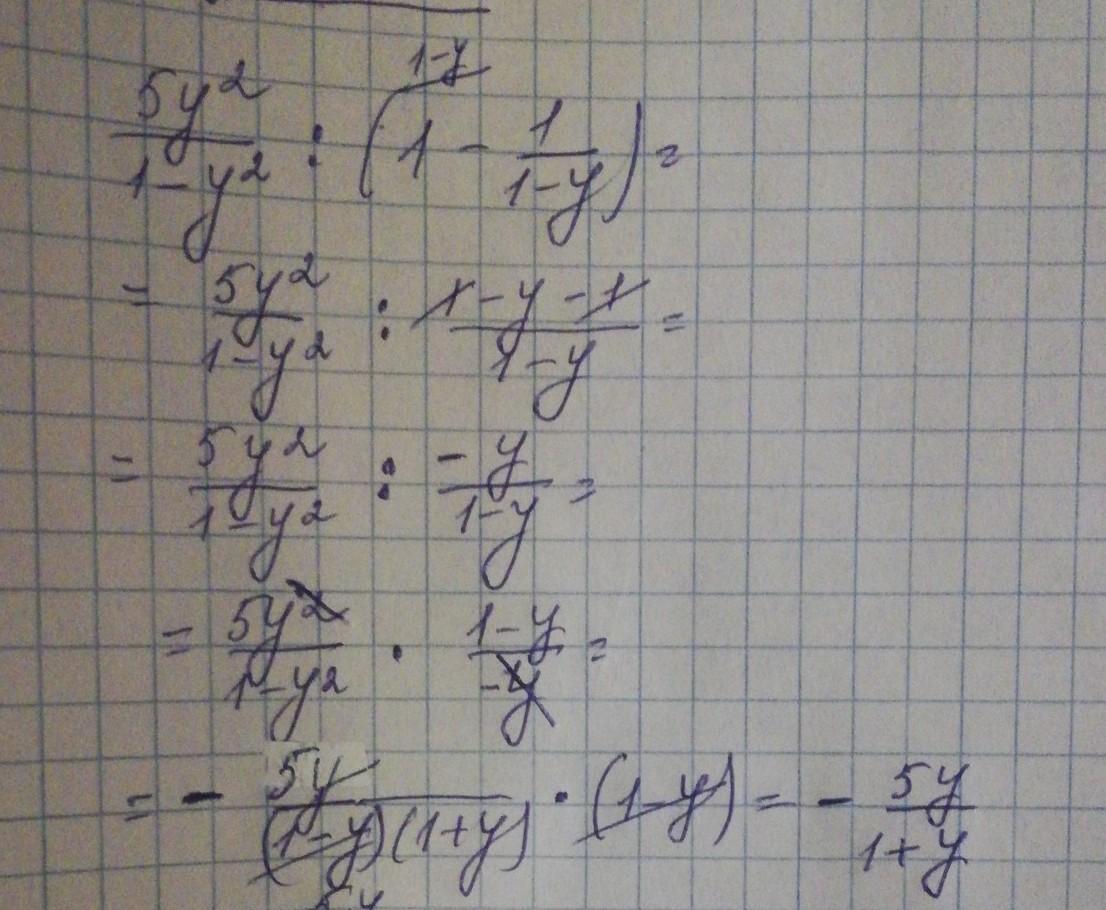 5y²/(1-y²) : (1 - 1/(1-y)) =
1-y
= 5y²/(1-y²) : (1-y-1)/(1-y) =
= 5y²/(1-y²) : -y/(1-y) =
= 5y²/(1-y²) · (1-y)/(-y) =
= - 5y/((1-y)(1+y)) · (1-y) = - 5y/(1+y)